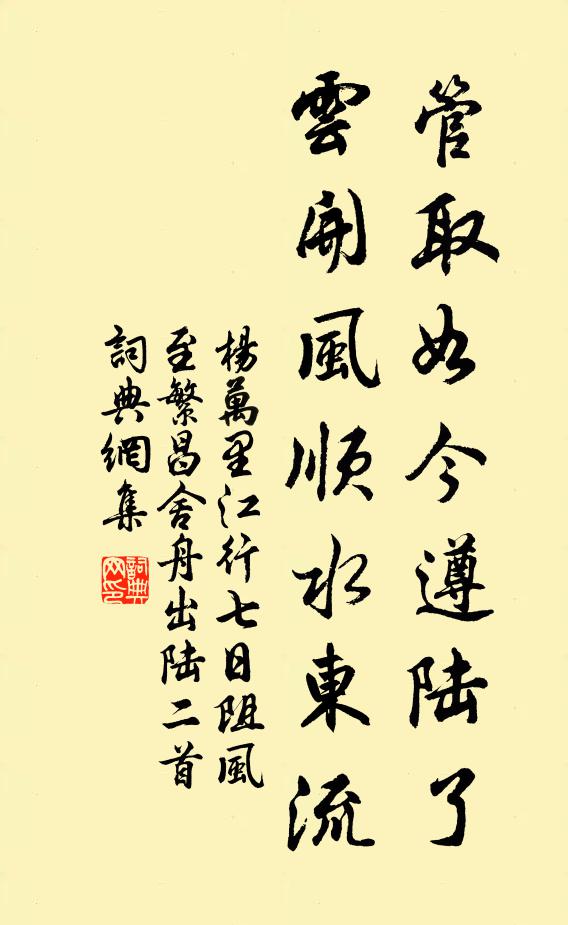 管取如今遵陆了
雲開風順水東流
楊萬里江行七日阻風
至繁昌舍舟出陆二首
詞典網集
詞典网印